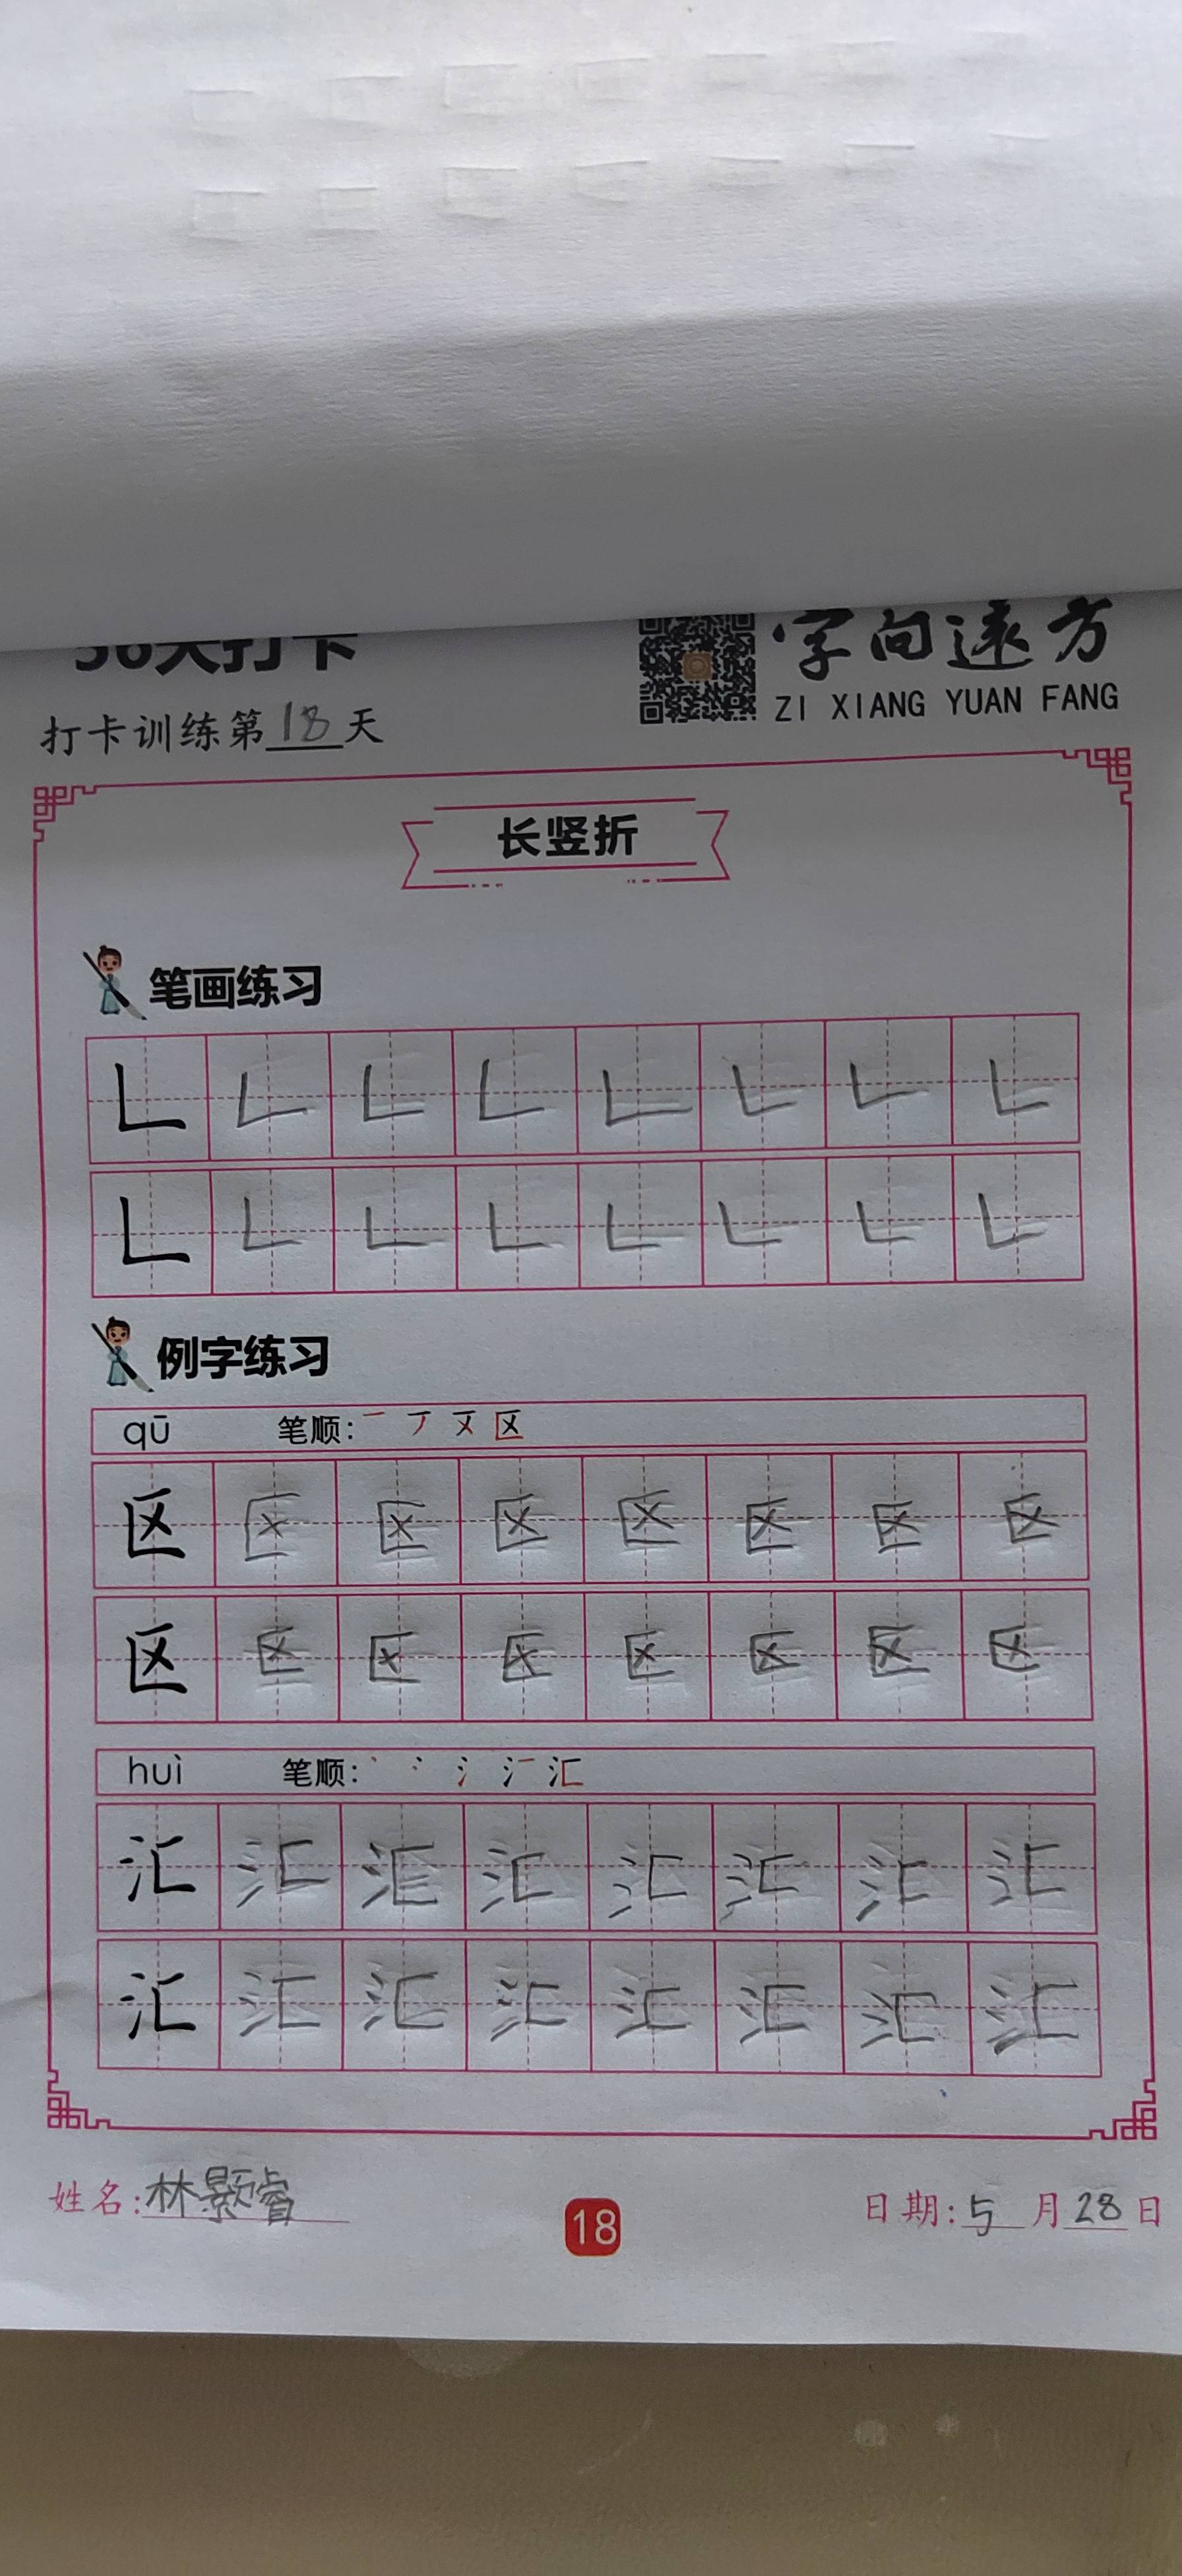 字向远方
ZI XIANG YUAN FANG
打卡训练第18天
长竖折
笔画练习
例字练习
qū 笔顺:
区 区 区 区 区 区 区 区
区 区 区 区 区 区 区 区
huì 笔顺:
汇 汇 汇 汇 汇 汇 汇 汇
汇 汇 汇 汇 汇 汇 汇 汇
姓名:林颢睿
18
日期:5月28日